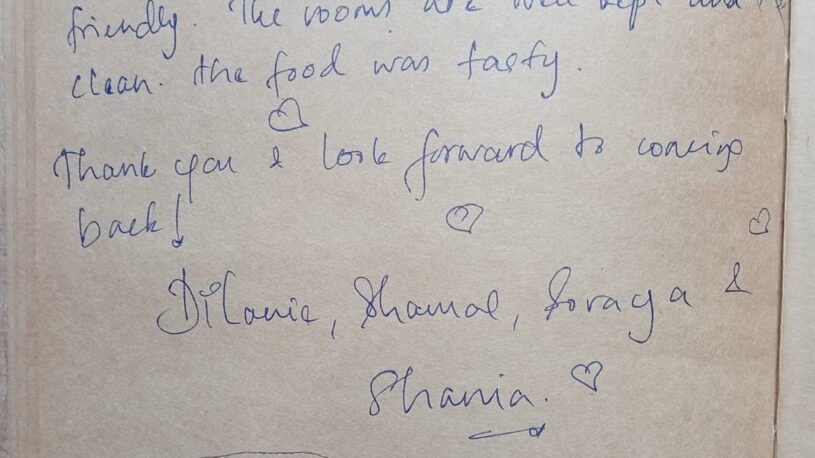 friendly. The rooms are well kept and
clean. the food was tasty.
Thank you & look forward to coming
back!
Dilanie, Shamal, Soraya &
Shania.